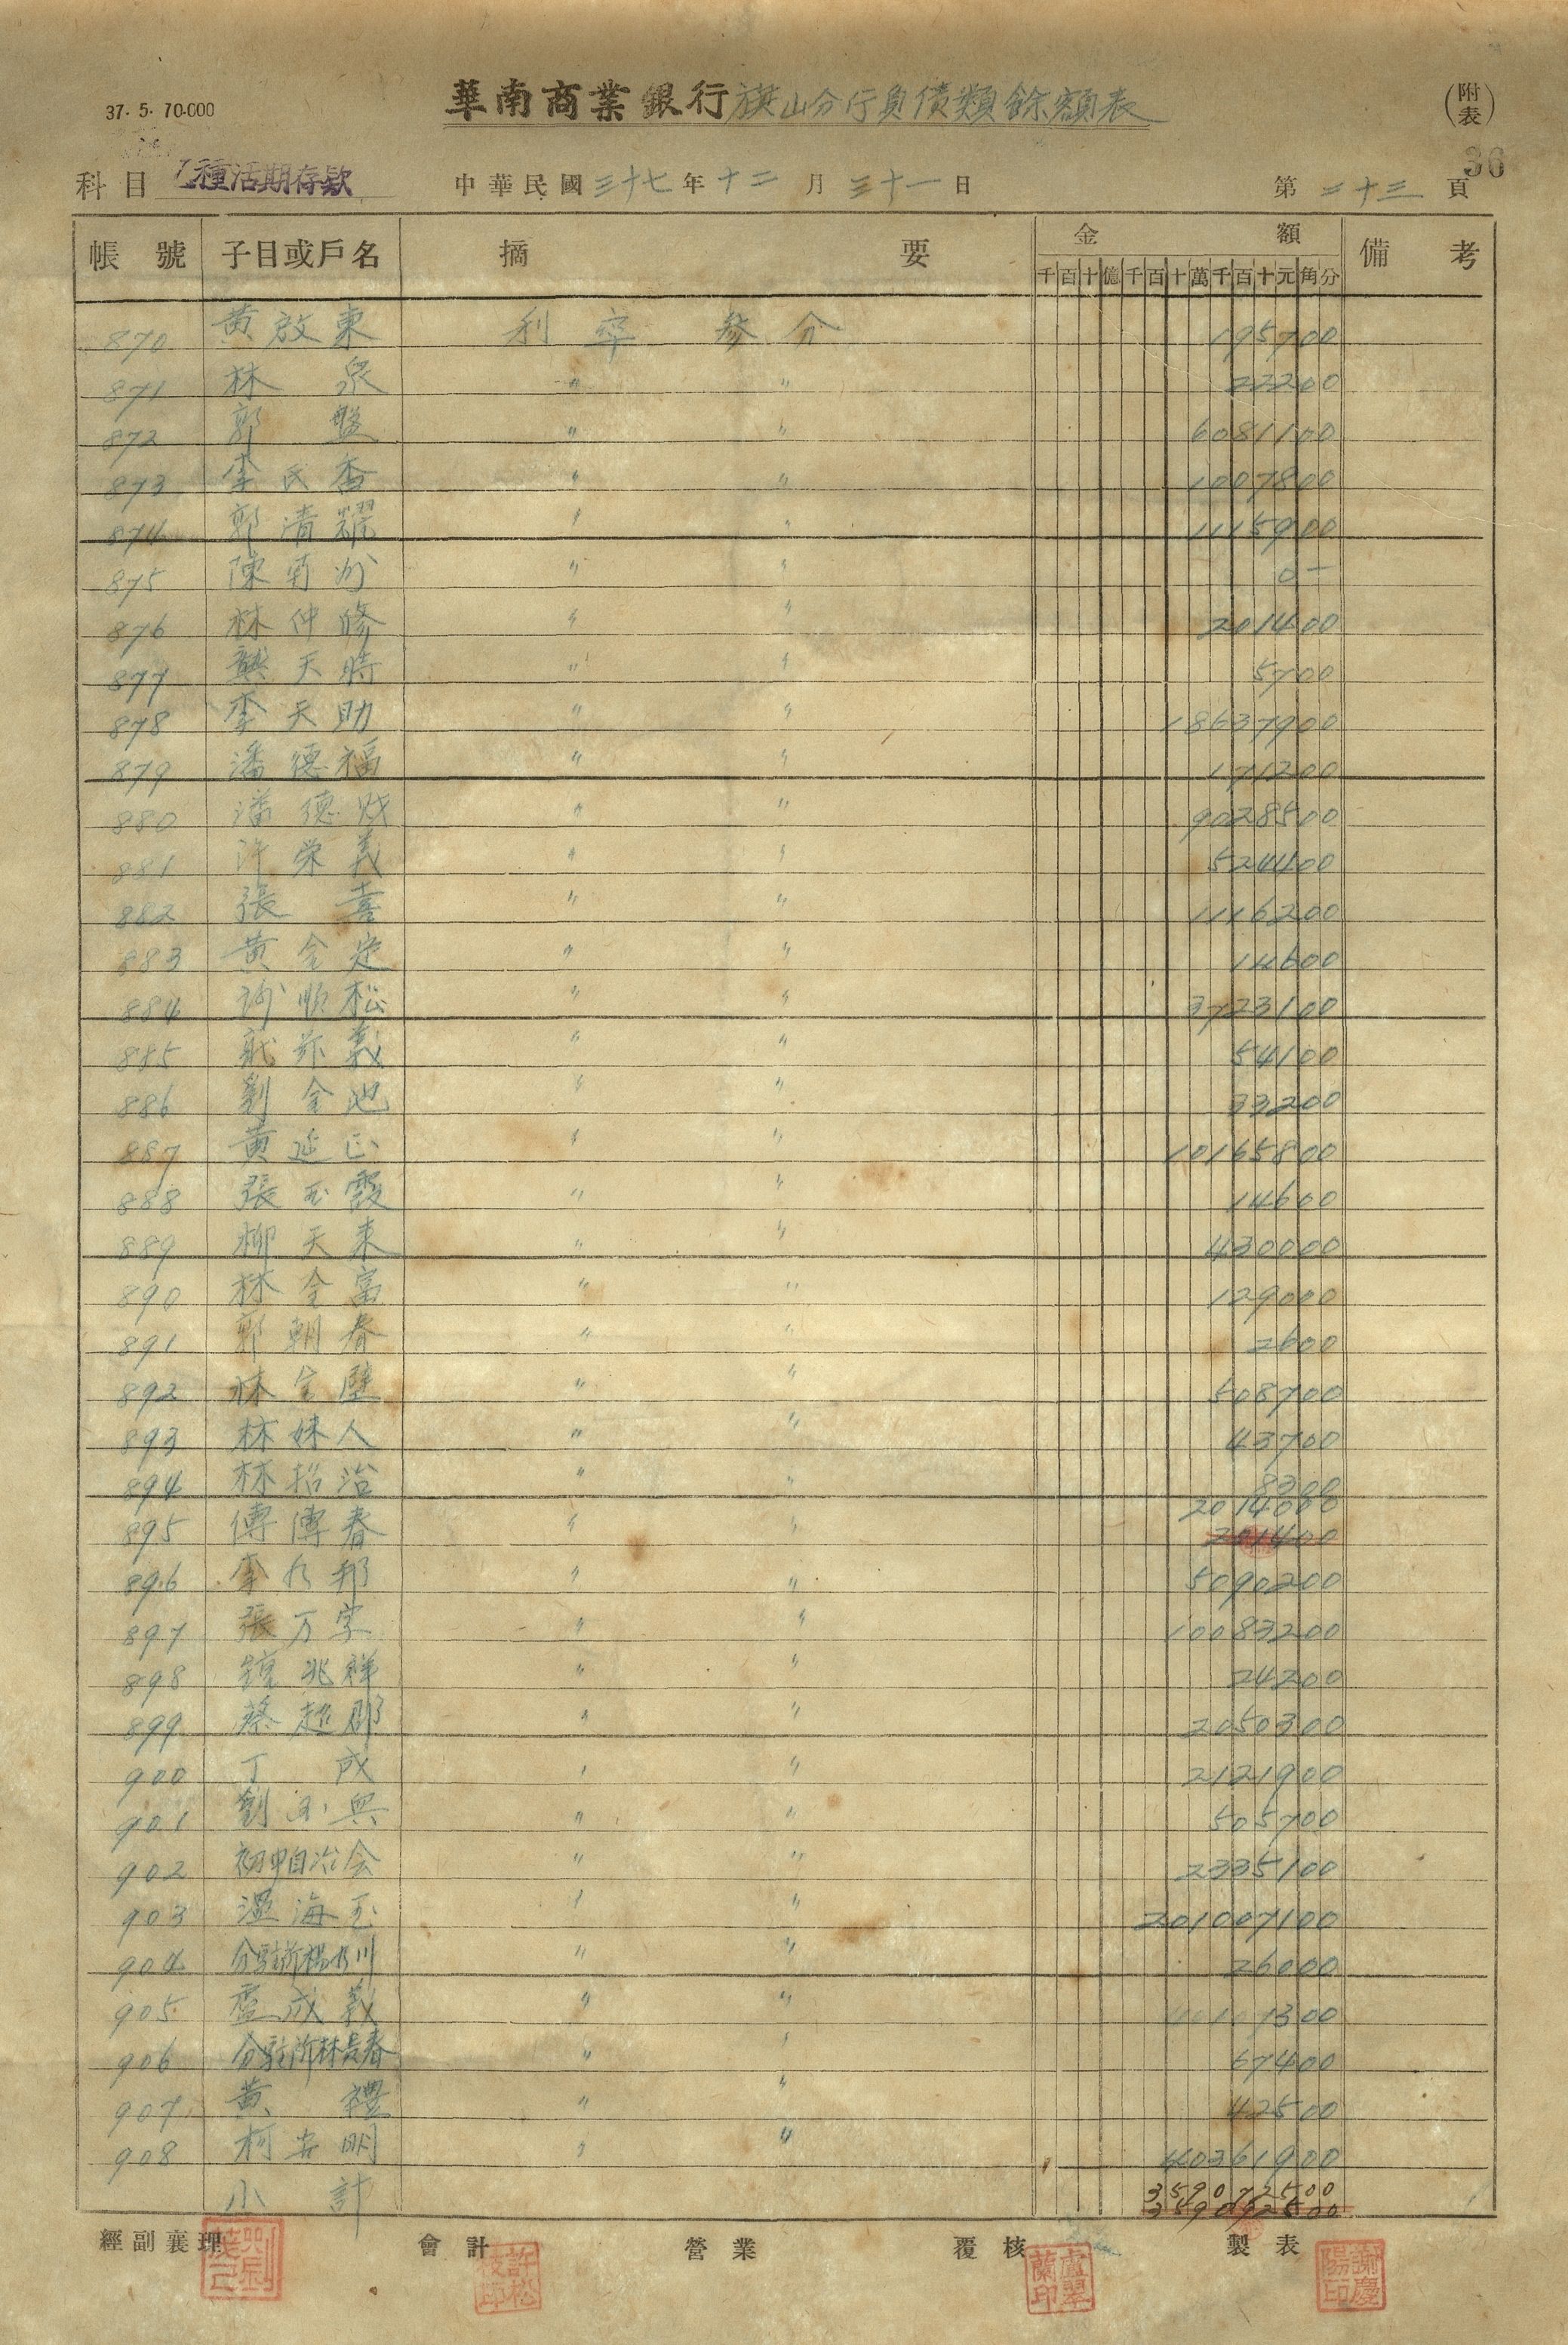 37. 5. 70.000
華南商業銀行旗山分行負債類餘額表
(附表)
36
科目 乙種活期存款 中華民國三十七年十二月三十一日 第二十三頁
帳號 子目或戶名 摘要 金額 備考
千百十億千百十萬千百十元角分
870 黃啟東 利率 參分 195700
871 林泉 〃 〃 22200
872 郭盤 〃 〃 6081100
873 李氏香 〃 〃 1007800
874 郭清耀 〃 〃 1115900
875 陳有 〃 〃 0-
876 林仲修 〃 〃 201400
877 龔天時 〃 〃 5700
878 李天助 〃 〃 18637900
879 潘德福 〃 〃 171200
880 潘德 〃 〃 9028500
881 許榮義 〃 〃 524400
882 張喜 〃 〃 1116200
883 黃金定 〃 〃 14600
884 順松 〃 〃 3723100
885 義 〃 〃 54100
886 劉金池 〃 〃 33200
887 黃延正 〃 〃 10165800
888 張玉霞 〃 〃 14600
889 柳天來 〃 〃 430000
890 林金富 〃 〃 129000
891 郭朝春 〃 〃 2600
892 林金壁 〃 〃 508700
893 林妹人 〃 〃 43700
894 林招治 〃 〃 8300
2014000
895 傅傳春 〃 〃 201400
896 李邦 〃 〃 5090200
897 張万字 〃 〃 10083200
898 鐘兆祥 〃 〃 24200
899 蔡超郡 〃 〃 2050300
900 丁成 〃 〃 2121900
901 劉玉興 〃 〃 505700
902 初中自治会 〃 〃 2335100
903 溫海玉 〃 〃 201007100
904 分駐所楊川 〃 〃 26000
905 盧成義 〃 〃
906 分駐所林長春 〃 〃 67400
907 黃禮 〃 〃 42500
908 柯安明 〃 〃 40361900
小計 359072500
349092500
經副襄理 會計 營業 覆核 製表
許松枝印
盧翠蘭印
謝慶陽印